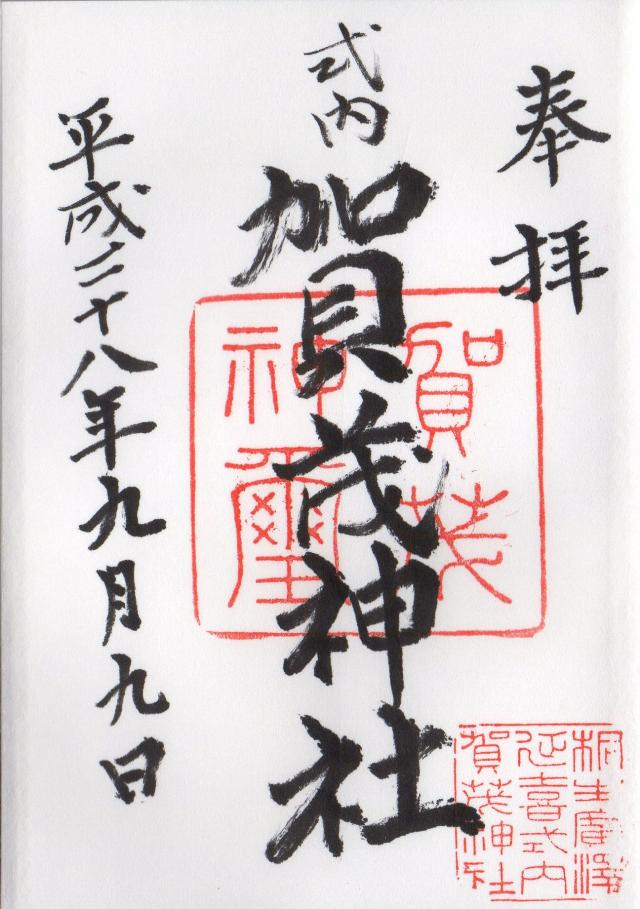 奉拝
式内
賀茂神社
平成二十八年九月九日
賀茂
神璽
桐生廣澤
延喜式内
賀茂神社